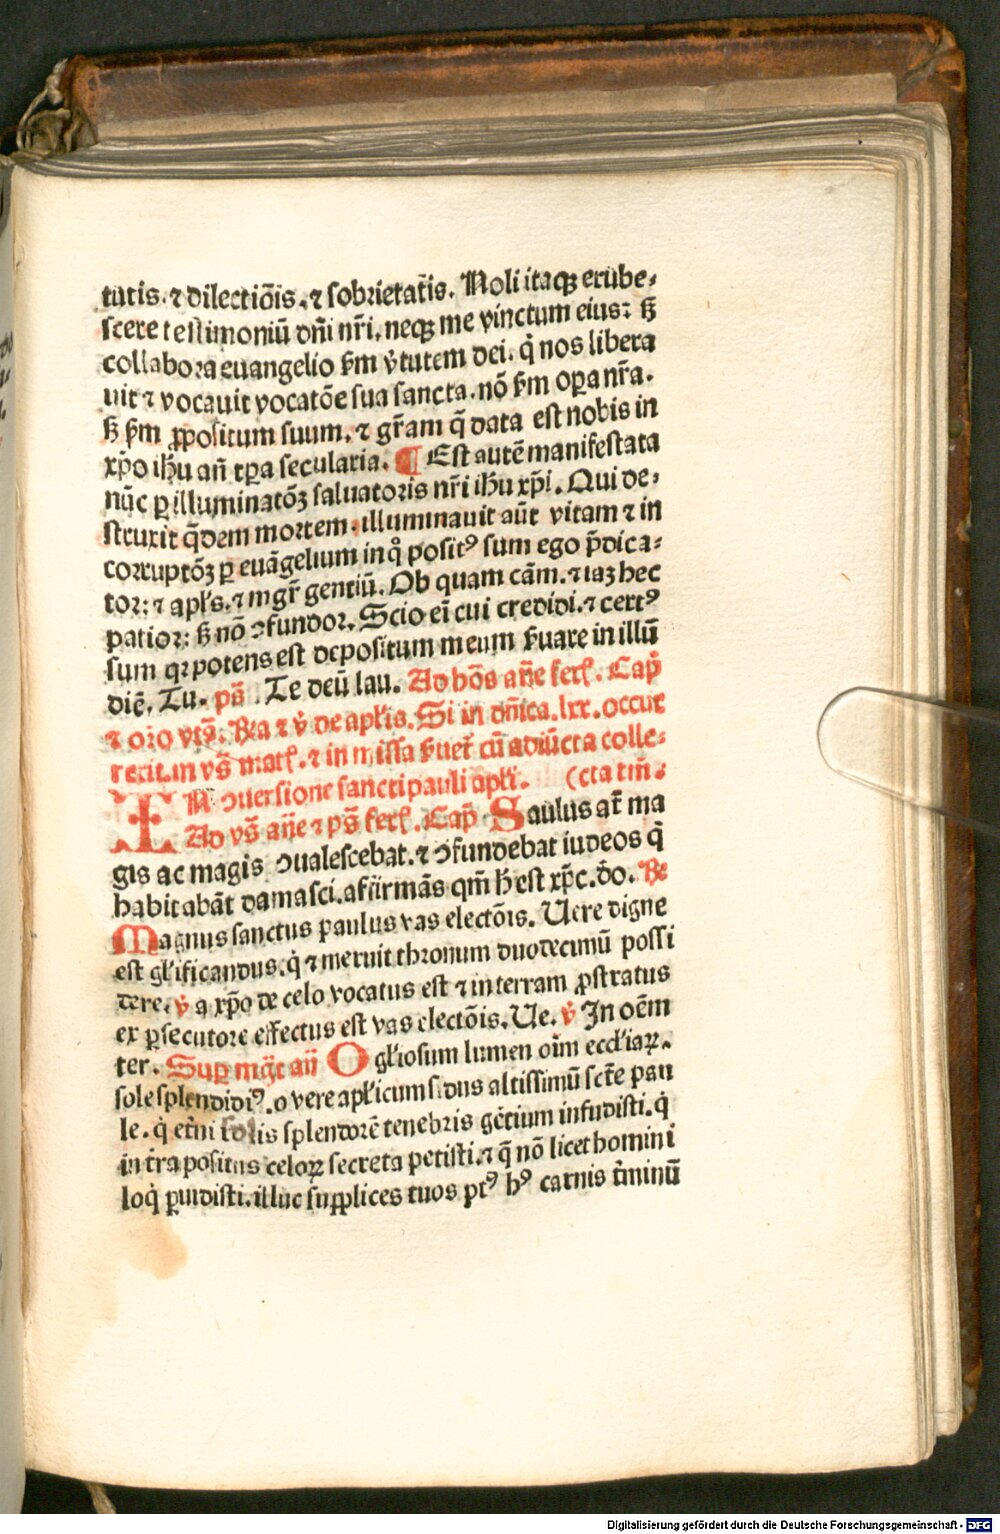 tutis. ⁊ dilectiōis. ⁊ sobrietat̄is. Noli itaqꝫ erube⸗
scere testimoniū dn̄i nr̄i. neqꝫ me vinctum eius: sꝫ
collabora euangelio ẜm v̓tutem dei. q̇ nos libera
uit ⁊ vocauit vocatōe sua sancta. nō ẜm oꝑa nr̄a.
sꝫ ẜm ꝓpositum suum. ⁊ gr̄am q̄ data est nobis in
xp̄o ih̄u an̄ tꝑa secularia. ¶ Est autē manifestata
nūc ꝑ illuminatōꝫ saluatoris nr̄i ih̄u xp̄i. Qui de⸗
struxit q̄dem mortem. illuminauit aūt vitam ⁊ in
corruptōꝫ ꝑ euāgelium in q̊ positꝰ sum ego p̄dica⸗
tor: ⁊ apl̄s. ⁊ mgr̄ gentiū. Ob quam cām. ⁊ iaꝫ hec
patior: sꝫ nō ꝯfundor. Scio ei̅ cui credidi. ⁊ certꝰ
sum qꝛ potens est depositum meum ẜuare in illū
diē. Tu. ps̄ . Te deū lau. Ad hōs an̄e ferl̄. Cap̄
⁊ oro vts̄. ℞a ⁊ v̓ de apl̄is. Si in dn̄ica. lxx. occur
rerit. in vs̄ matl̄. ⁊ in missa ẜuet̄ cū adiūcta colle⸗
IN ꝯuersione sancti pauli apl̄i. (cta tm̄.
Ad vs̄ an̄e ⁊ ps̄ ferl̄. Cap̄ Saulus at̄ ma
gis ac magis ꝯualescebat. ⁊ ꝯfundebat iudeos q̇
habitabāt damasci. affirmās qm̄ h̄ est xp̄c. do̅. ℞
Magnus sanctus paulus vas electōis. Uere digne
est gl̄ificandus. q̇ ⁊ meruit thronum duodecimū possi
dere. v̓ a xp̄o de celo vocatus est ⁊ in terram ꝓstratus
ex ꝑsecutore effectus est vas electōis. Ue. v̓ In oēm
ter. Suꝑ mgc̄t an̄ O gl̄iosum lumen oīm eccl̄iaꝝ.
sole splendidiꝰ. o vere apl̄icum sidus altissimū scr̄e pau
le. q̇ et̓ni solis splendorē tenebris gētium infudisti. q̇
in t̓ra positus celoꝝ secreta petisti. ⁊ q̄ nō licet homini
loq̇ ꝑuidisti. illuc supplices tuos pꝰt hꝰ carnis t̓minū
Digitalisierung gefördert durch die Deutsche Forschungsgemeinschaft - DFG